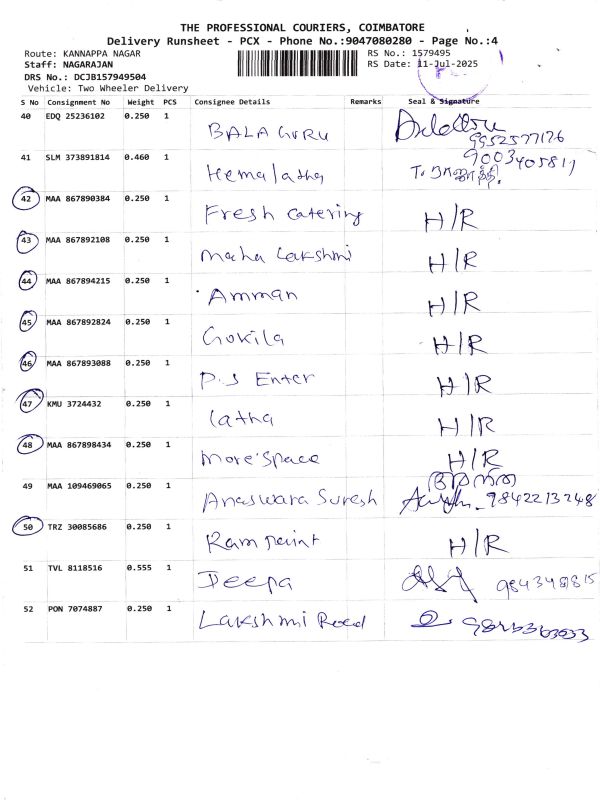 THE PROFESSIONAL COURIERS, COIMBATORE
Delivery Runsheet - PCX - Phone No.:9047080280 - Page No.:4
Route: KANNAPPA NAGAR RS No.: 1579495
Staff: NAGARAJAN RS Date: 11-Jul-2025
DRS No.: DCJB157949504
Vehicle: Two Wheeler Delivery
S No Consignment No Weight PCS Consignee Details Remarks Seal & Signature
40 EDQ 25236102 0.250 1 BALA GURU 9952577126
41 SLM 373891814 0.460 1 Hemalatha 9003405817
42 MAA 867890384 0.250 1 Fresh catering H/R
43 MAA 867892108 0.250 1 Maha Lakshmi H/R
44 MAA 867894215 0.250 1 Amman H/R
45 MAA 867892824 0.250 1 Gokila H/R
46 MAA 867893088 0.250 1 P.S Enter H/R
47 KMU 3724432 0.250 1 latha H/R
48 MAA 867898434 0.250 1 More Space H/R
49 MAA 109469065 0.250 1 Anaswara Suresh 9842213248
50 TRZ 30085686 0.250 1 Ram point H/R
51 TVL 8118516 0.555 1 Deepa
52 PON 7074887 0.250 1 Lakshmi Reed